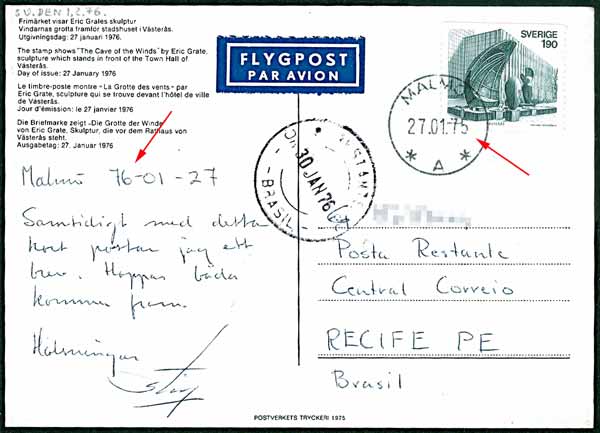 SV.DEN 1,2.76.
Frimärket visar Eric Grates skulptur
Vindarnas grotta framför stadshuset i Västerås.
Utgivningsdag: 27 januari 1976.
The stamp shows "The Cave of the Winds" by Eric Grate,
sculpture which stands in front of the Town Hall of
Västerås.
Day of issue: 27 January 1976
Le timbre-poste montre «La Grotte des vents» par
Eric Grate, sculpture qui se trouve devant l'hôtel de ville
de Västerås.
Jour d'émission: le 27 janvier 1976
Die Briefmarke zeigt «Die Grotte der Winde
von Eric Grate, Skulptur, die vor dem Rathaus von
Västerås steht.
Ausgabetag: 27. Januar 1976
FLYGPOST
PAR AVION
SVERIGE
190
MALMÖ
27.01.75
* A *
30 JAN 76
- BRASIL -
Malmö 76-01-27
Samtidigt med detta
kort postar jag ett
brev. Hoppas båda
kommer fram.
Hälsningar
Posta Restante
Central Correio
RECIFE PE
Brasil
POSTVERKETS TRYCKERI 1975